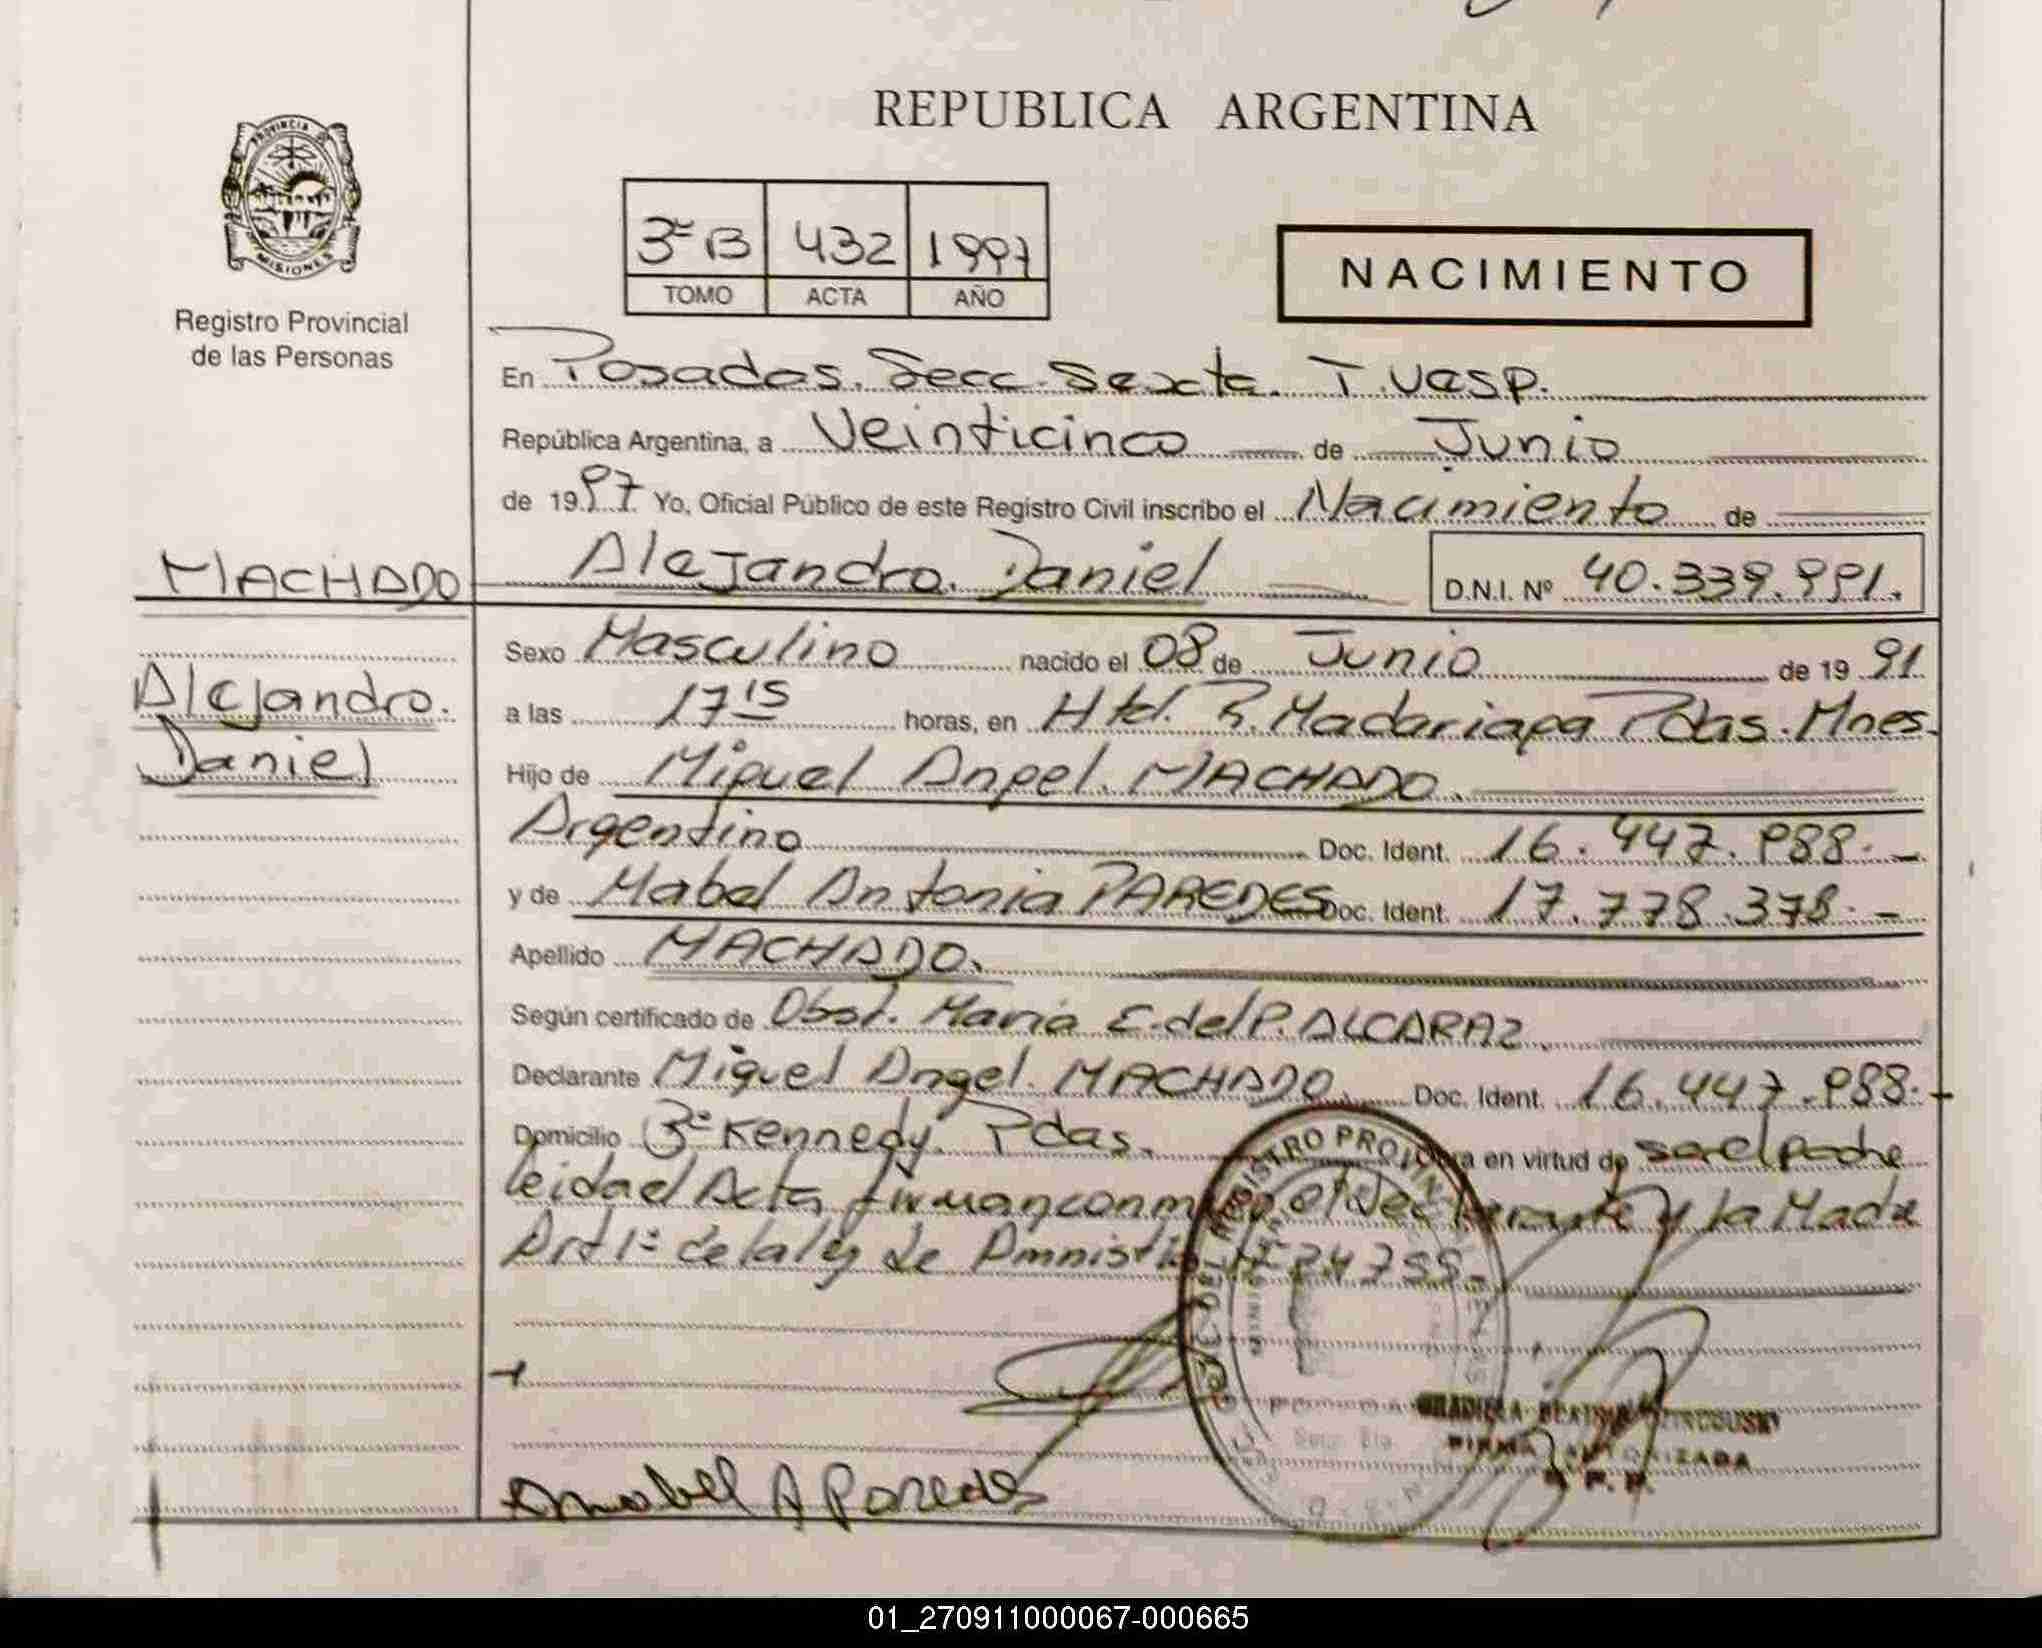 REPUBLICA ARGENTINA
PROVINCIA DE
MISIONES
Registro Provincial
de las Personas
3ª B 432 1997
TOMO ACTA AÑO
NACIMIENTO
En Posadas. Secc. Sexta. T. Vesp.
República Argentina, a Veinticinco de Junio
de 1997 Yo, Oficial Público de este Registro Civil inscribo el Nacimiento de
MACHADO Alejandro. Daniel D.N.I. Nº 40.339.991.
Alejandro.
Daniel
Sexo Masculino nacido el 08 de Junio de 19 91.
a las 17 15 horas, en Htal. R. Madariaga Pdas. Mnes.
Hijo de Miguel Angel. MACHADO.
Argentino Doc. Ident. 16.447.988.-
y de Mabel Antonia PAREDES Doc. Ident. 17.778.378.-
Apellido MACHADO.
Según certificado de Obst. Maria E. del P. ALCARAZ.
Declarante Miguel Angel. MACHADO. Doc. Ident. 16.447.988.-
Domicilio 3ª Kennedy. Pdas. en virtud de ser el padre
leida el Acta firman el Declarante y la Madre
Art 1º de la ley de Amnistia 24.755.-
DEL REGISTRO PROVIN
FIRMA AUTORIZADA
R.P.P.
A Paredes
01_270911000067-000665